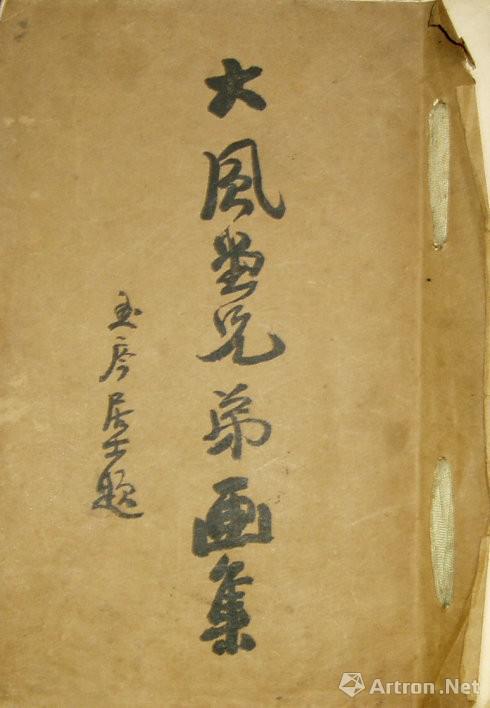 大風堂兄弟画集
玉岑居士题
Artron.Net